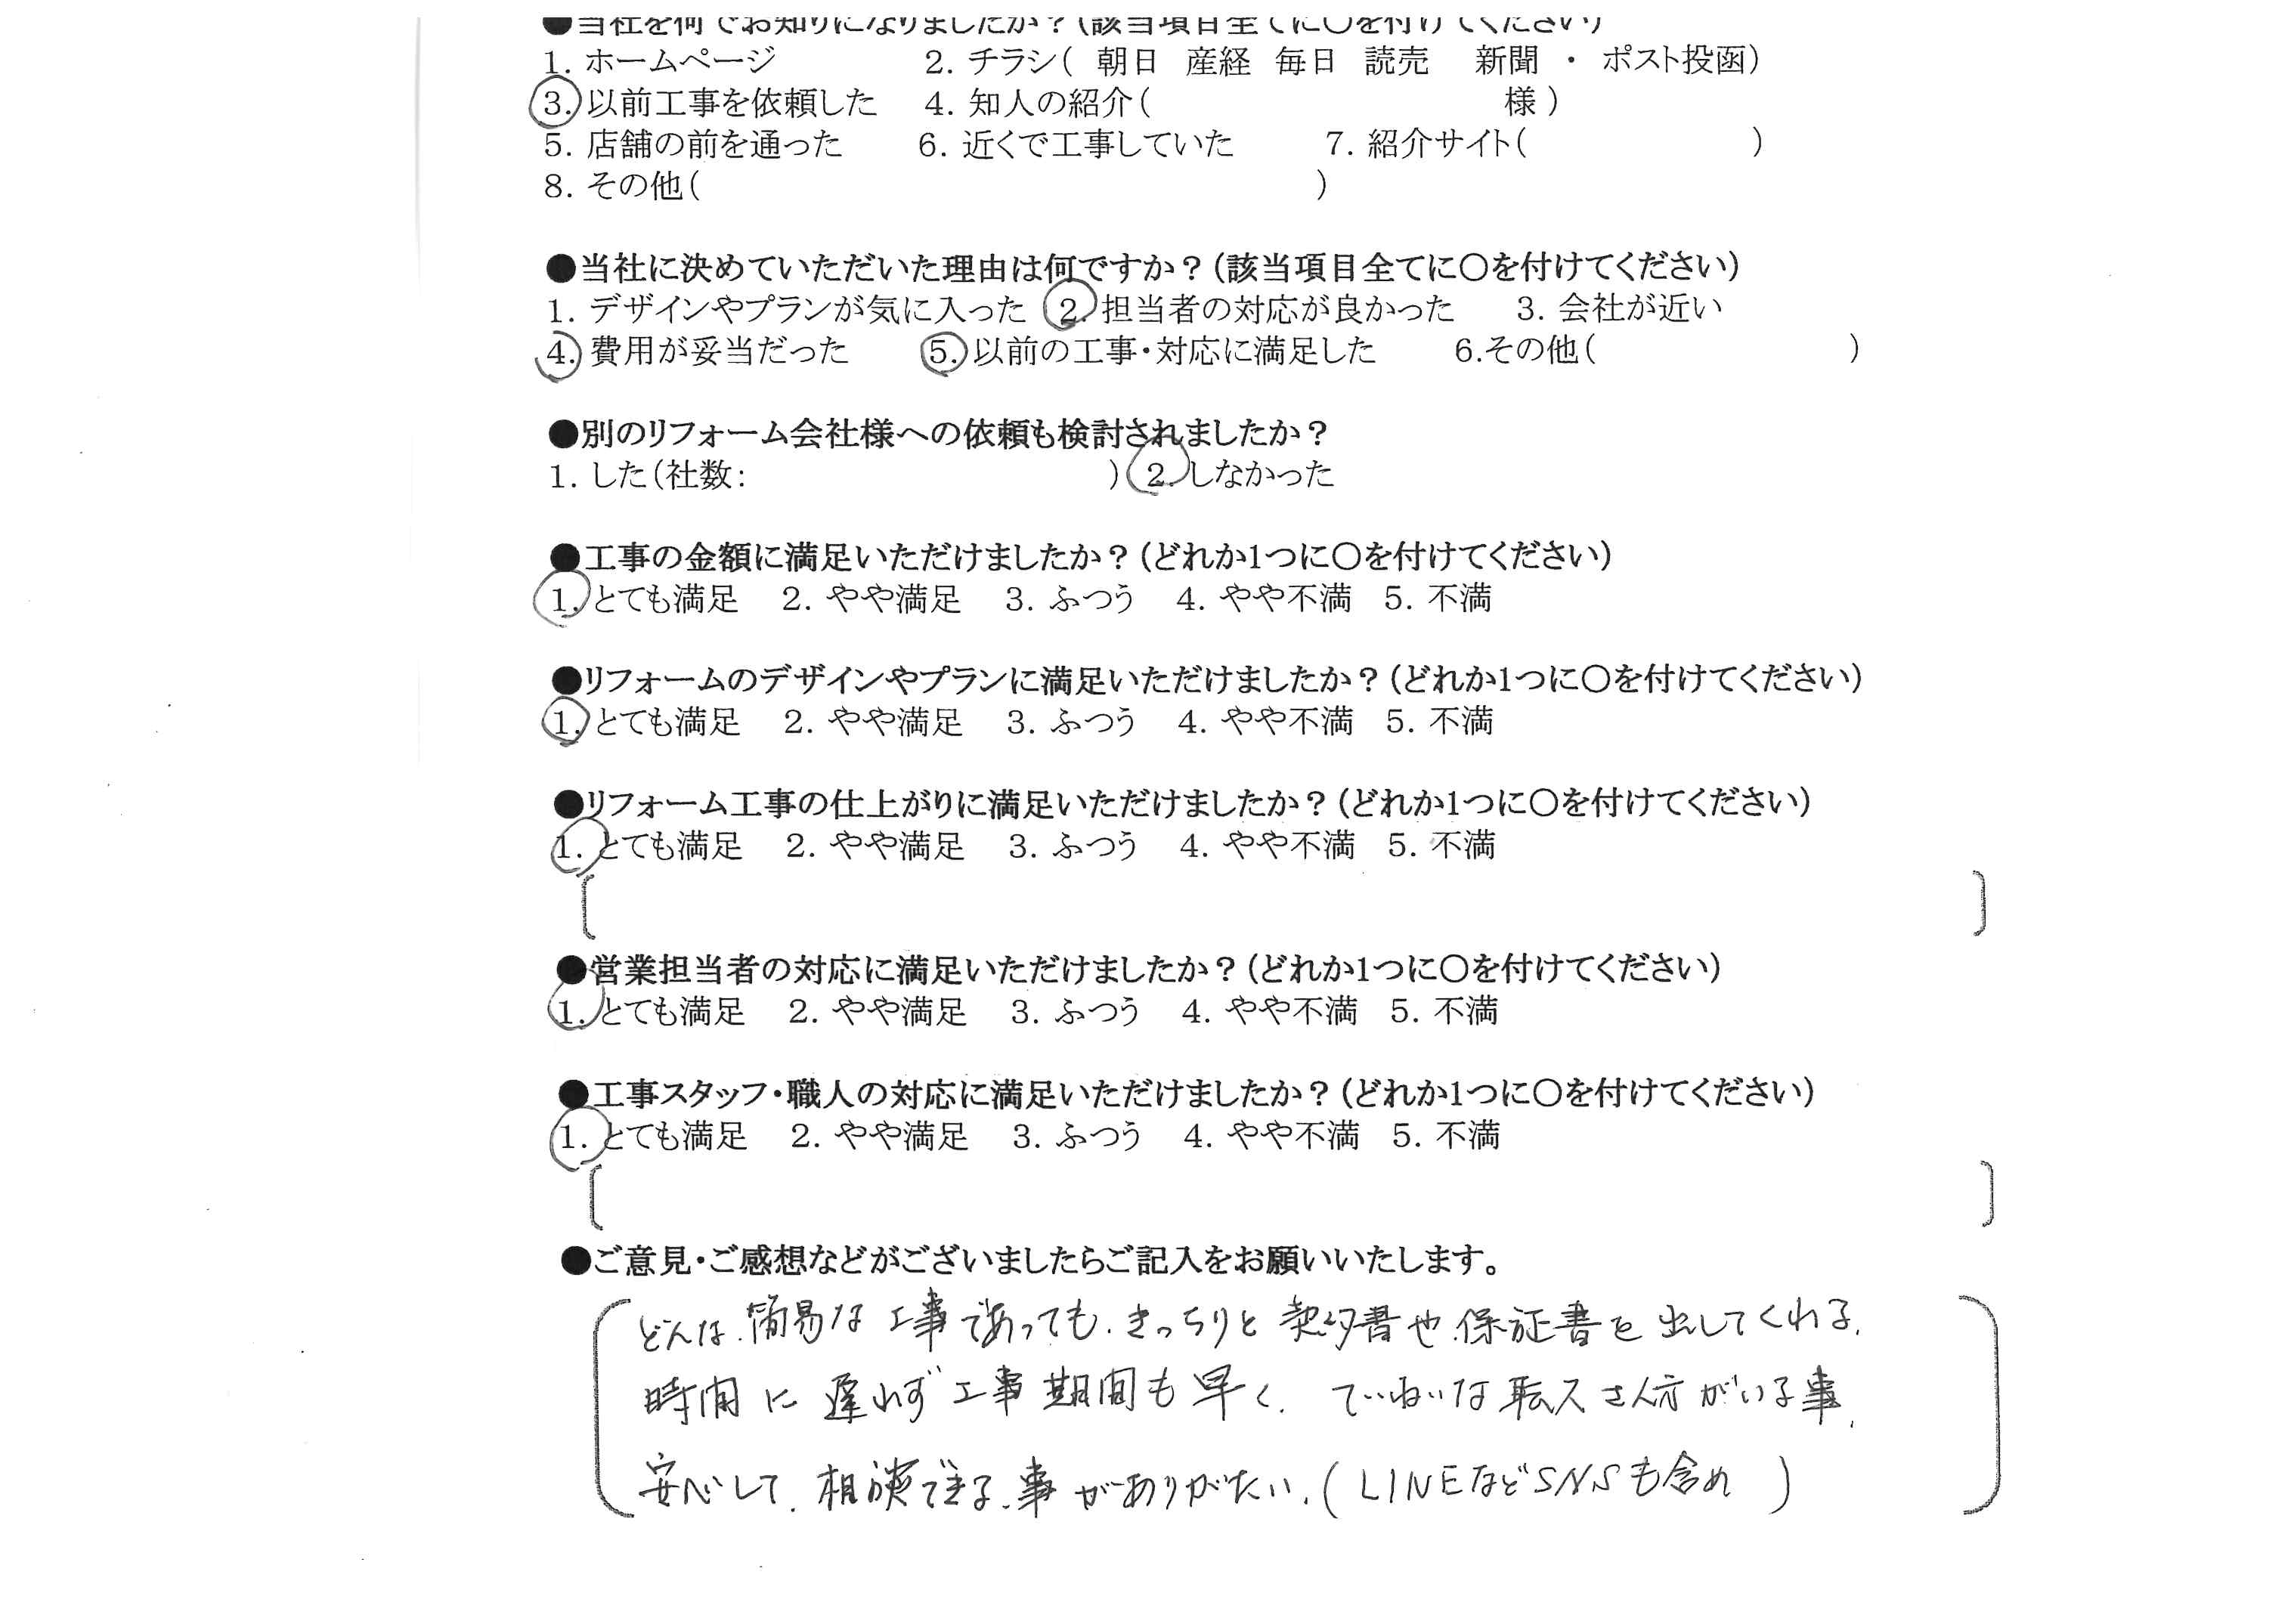 ●当社を何でお知りになりましたか？(該当項目全てに〇を付けてください)
1. ホームページ 2. チラシ( 朝日 産経 毎日 読売 新聞 ・ ポスト投函)
3. 以前工事を依頼した 4. 知人の紹介( 様)
5. 店舗の前を通った 6. 近くで工事していた 7. 紹介サイト( )
8. その他( )
●当社に決めていただいた理由は何ですか？(該当項目全てに〇を付けてください)
1. デザインやプランが気に入った 2. 担当者の対応が良かった 3. 会社が近い
4. 費用が妥当だった 5. 以前の工事・対応に満足した 6.その他( )
●別のリフォーム会社様への依頼も検討されましたか？
1. した(社数: ) 2. しなかった
●工事の金額に満足いただけましたか？(どれか1つに〇を付けてください)
1. とても満足 2. やや満足 3. ふつう 4. やや不満 5. 不満
●リフォームのデザインやプランに満足いただけましたか？(どれか1つに〇を付けてください)
1. とても満足 2. やや満足 3. ふつう 4. やや不満 5. 不満
●リフォーム工事の仕上がりに満足いただけましたか？(どれか1つに〇を付けてください)
1. とても満足 2. やや満足 3. ふつう 4. やや不満 5. 不満
●営業担当者の対応に満足いただけましたか？(どれか1つに〇を付けてください)
1. とても満足 2. やや満足 3. ふつう 4. やや不満 5. 不満
●工事スタッフ・職人の対応に満足いただけましたか？(どれか1つに〇を付けてください)
1. とても満足 2. やや満足 3. ふつう 4. やや不満 5. 不満
●ご意見・ご感想などがございましたらご記入をお願いいたします。
どんな、簡易な工事であっても、きっちりと契約書や保証書を出してくれる、
時間に遅れず工事期間も早く、ていねいな職人さん方がいる事、
安心して、相談できる、事がありがたい、(LINEなどSNSも含め)